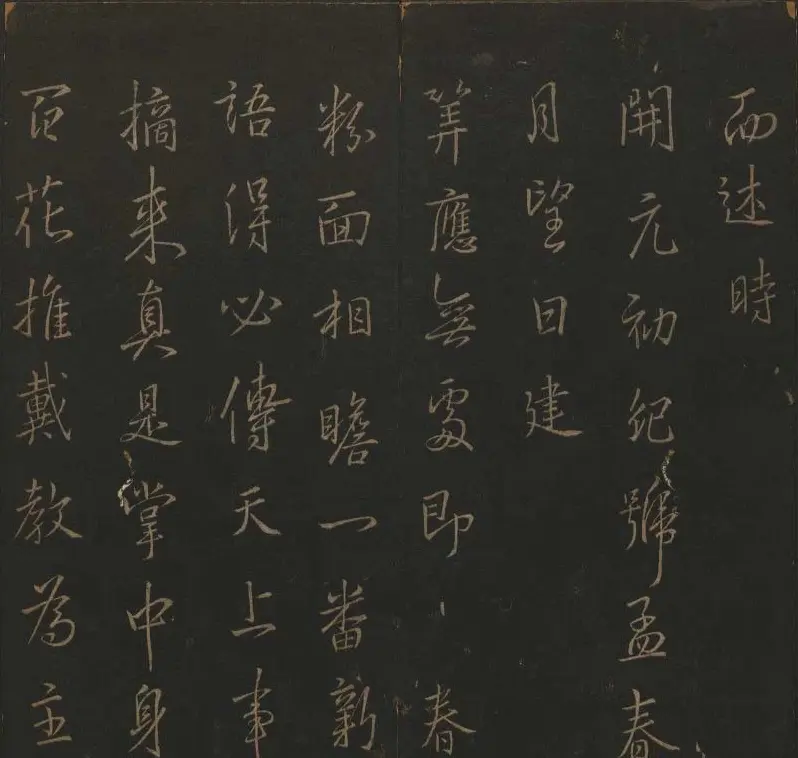 而述時
開元初紀號孟春
月望日建
筭應無處即 春
粉面相瞻一番新
語得必傳天上事
摘來真是掌中身
百花推戴教為主